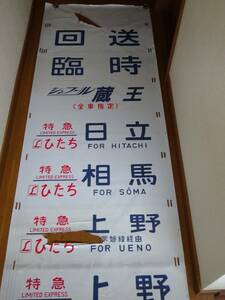 回送
臨時
シュプール蔵王
(全車指定)
特急 日立
LIMITED EXPRESS
Lひたち FOR HITACHI
特急 相馬
LIMITED EXPRESS
Lひたち FOR SŌMA
特急 上野
LIMITED EXPRESS 常磐線経由
Lひたち FOR UENO
特急 上野
LIMITED EXPRESS